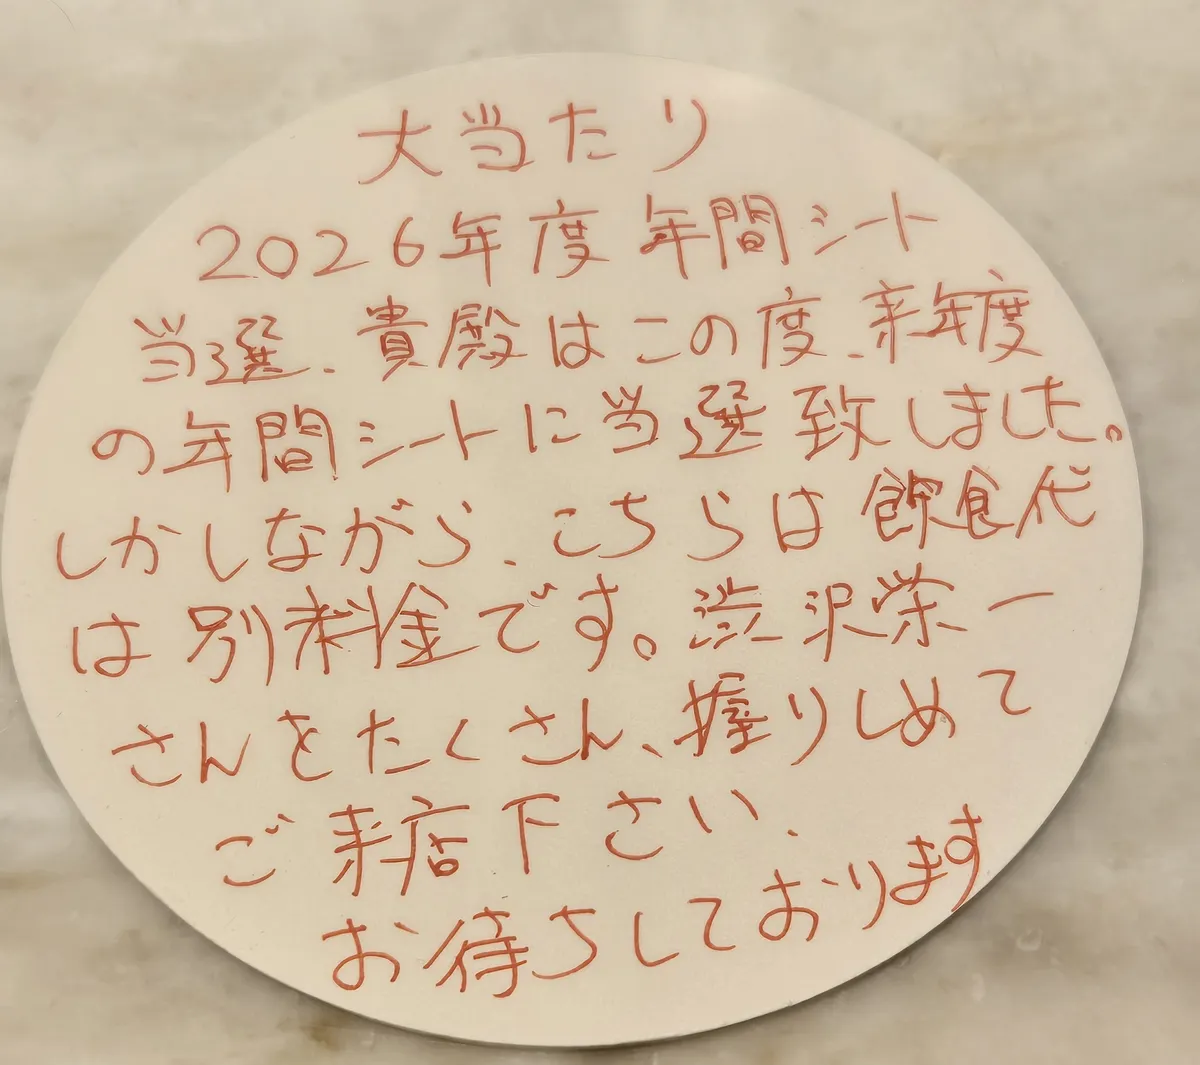 大当たり
2026年度 年間シート
当選、貴殿はこの度、来年度
の年間シートに当選致しました。
しかしながら、こちらは飲食代
は別料金です。渋沢栄一
さんをたくさん、握りしめて
ご来店下さい、
お待ちしております